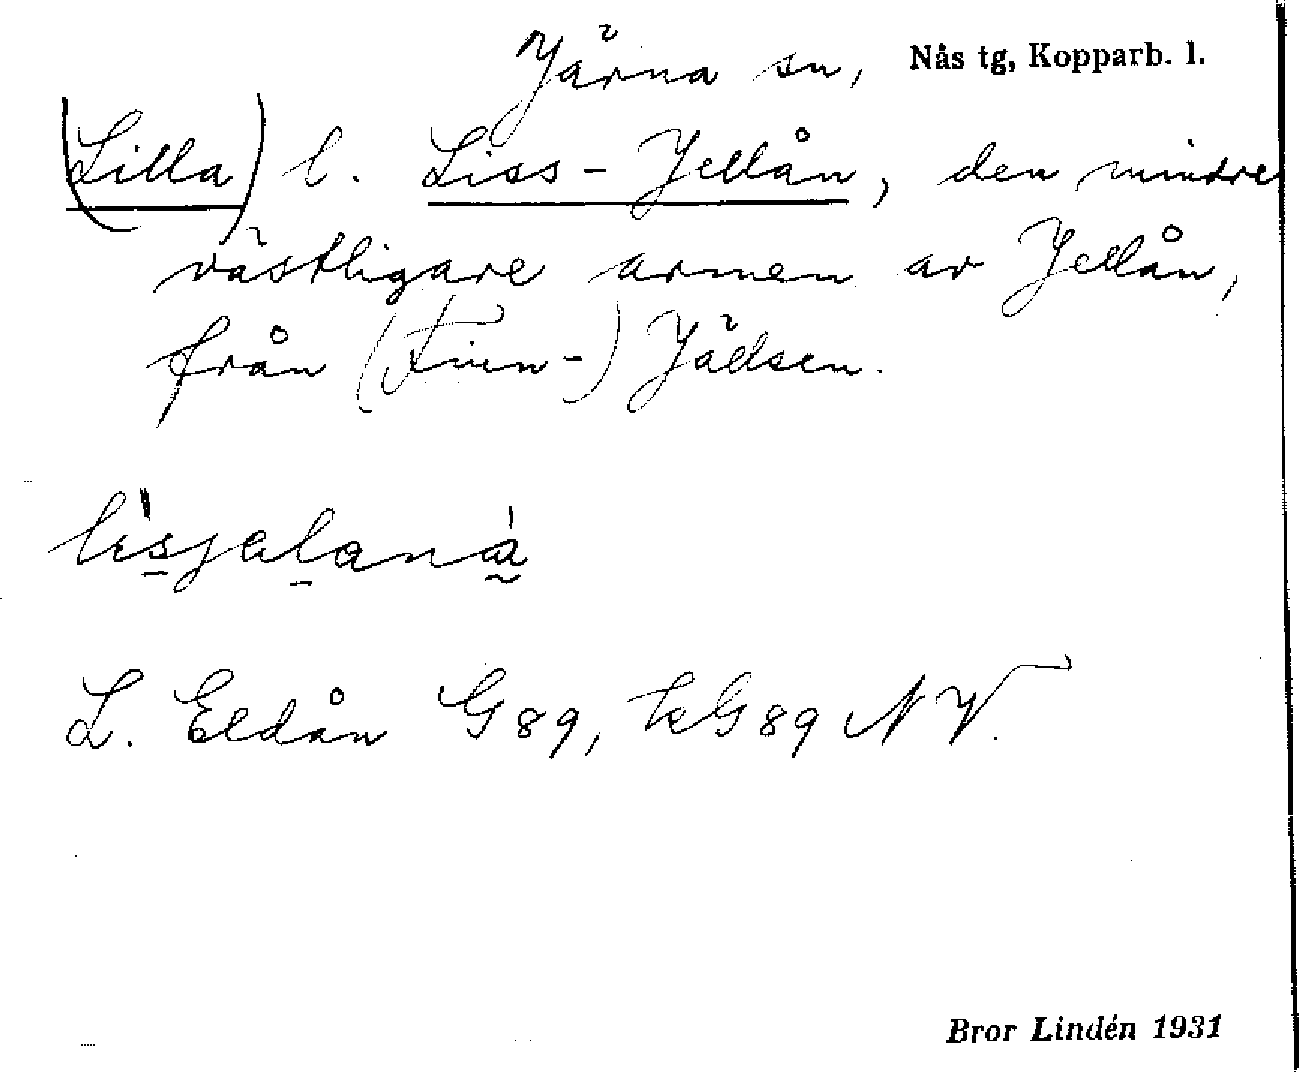 Järna sn, Nås tg, Kopparb. l.
(Lilla) l. Liss-Jellån, den mindre
västligare armen av Jellån,
från (Finn-) Jällsen.
L. Eldån G89, kG89 NV.
Bror Lindén 1931